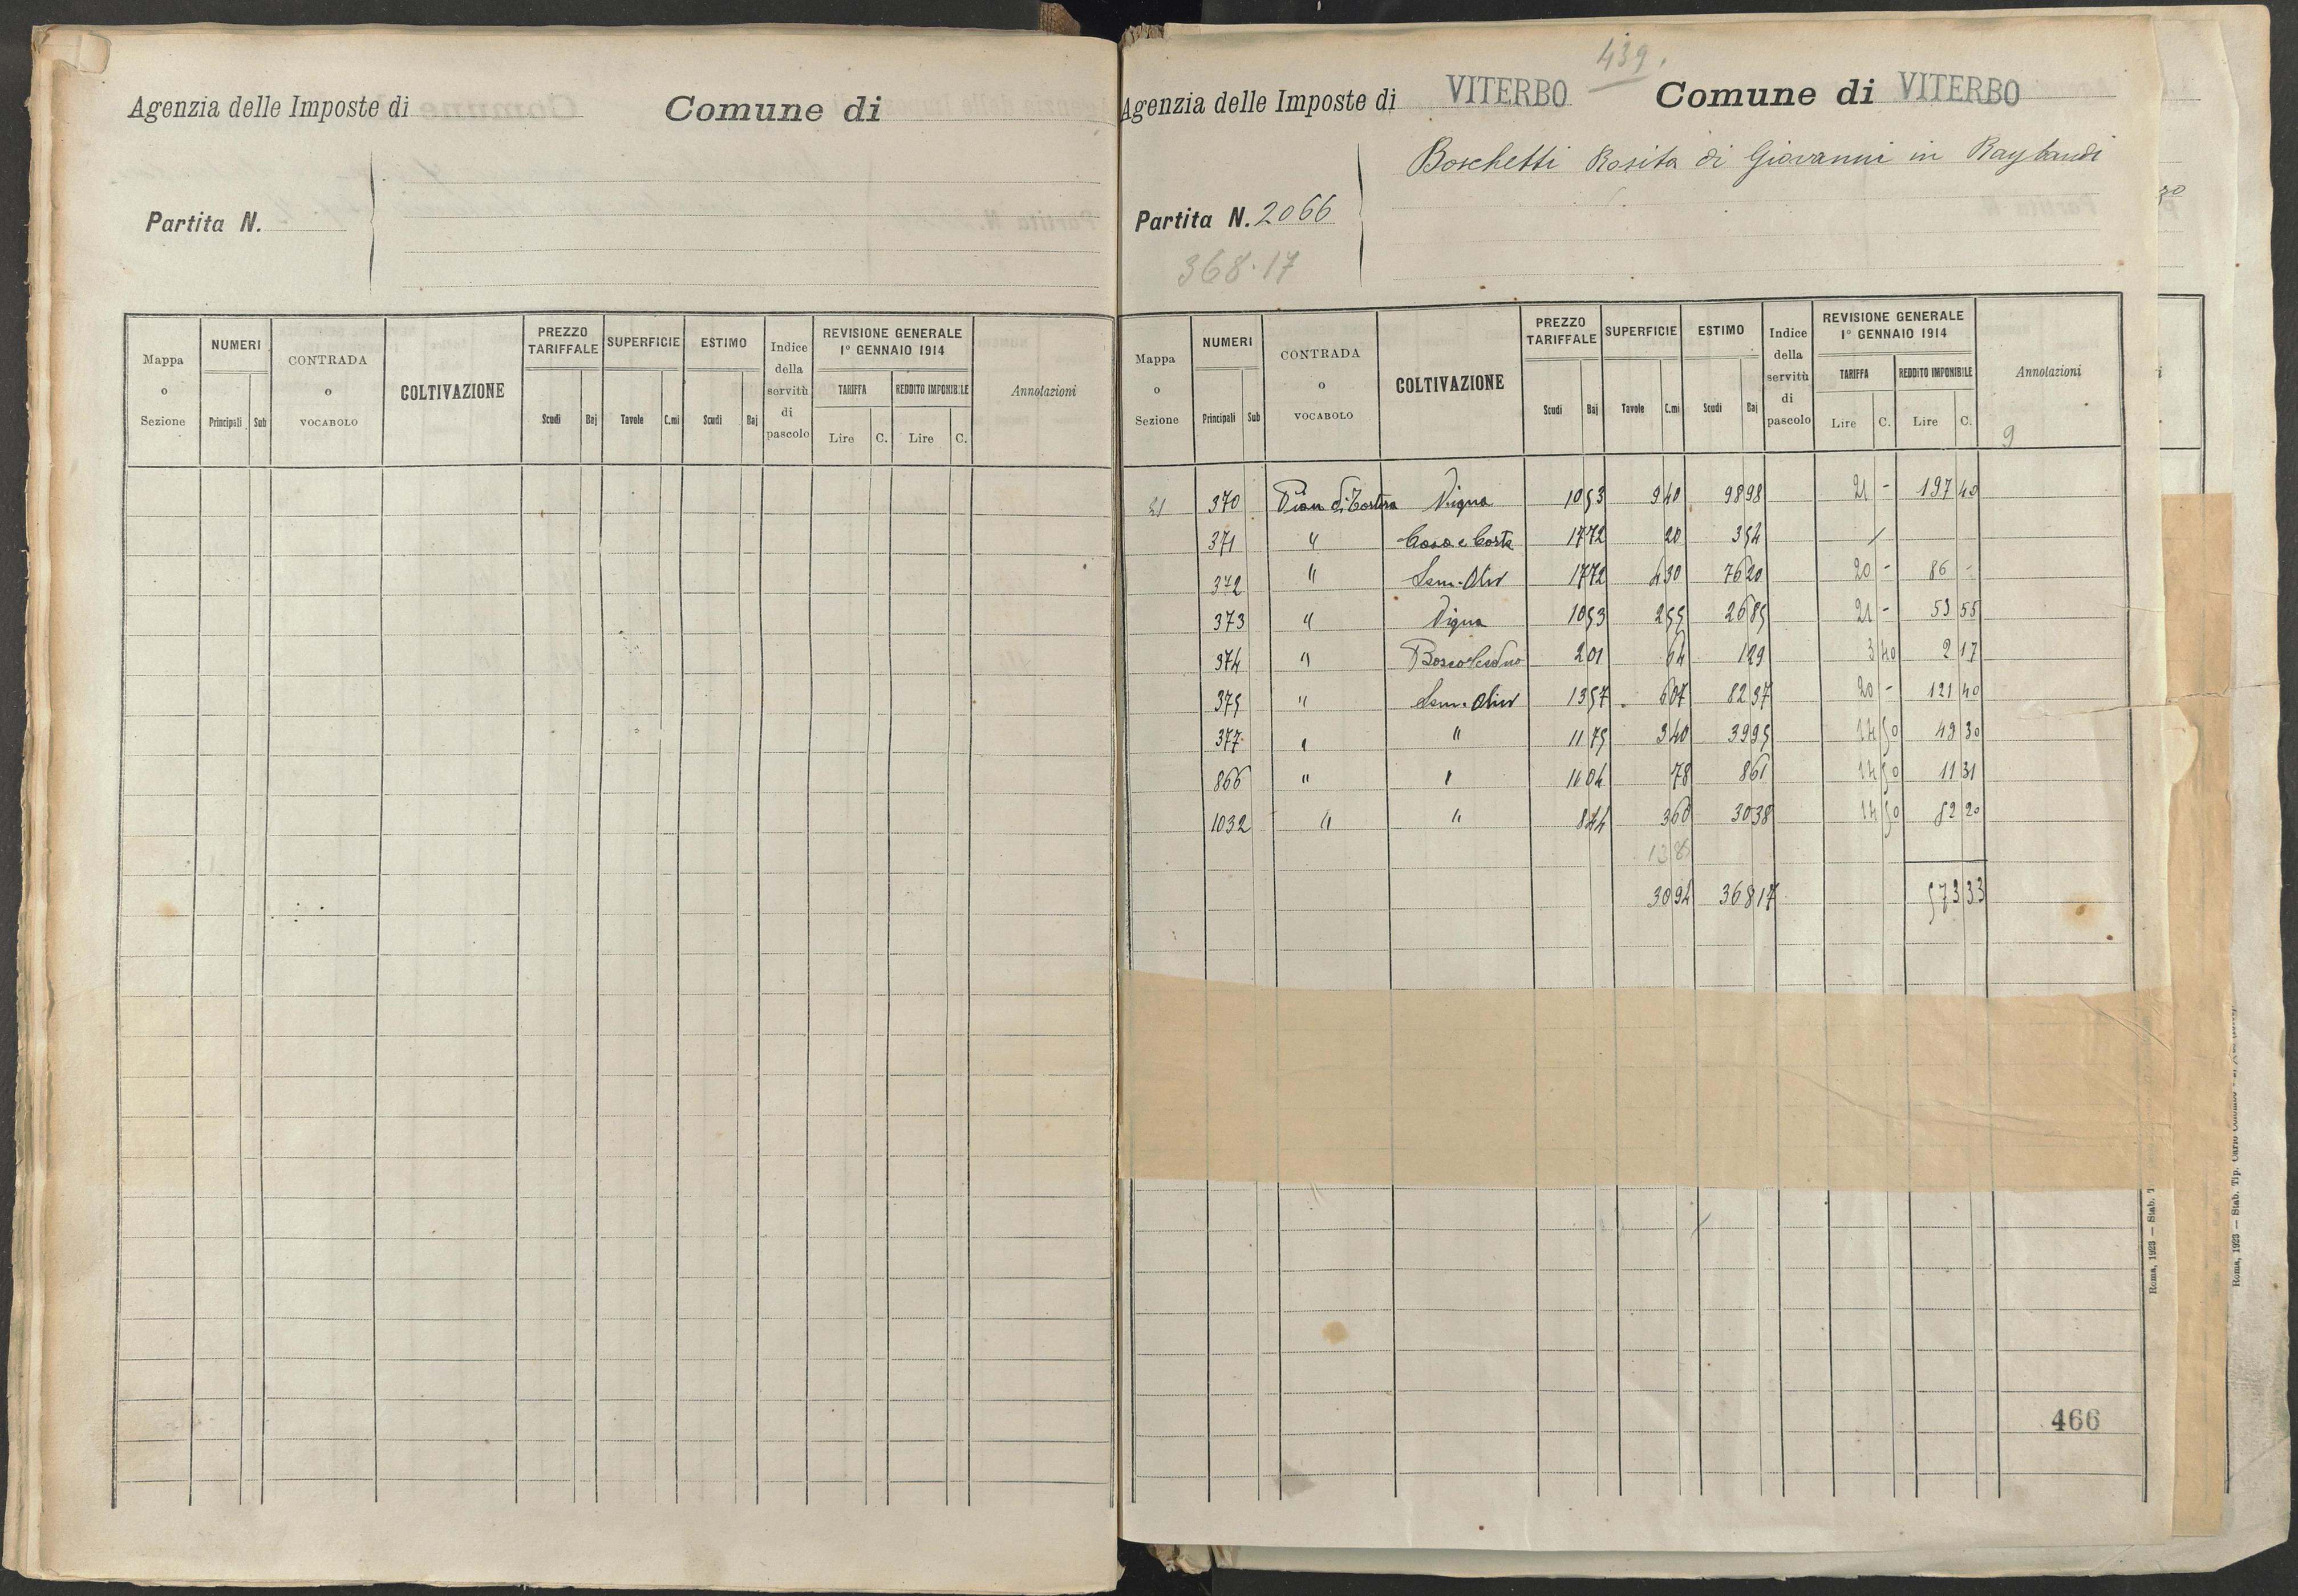 Agenzia delle Imposte di Comune di
Partita N.
Mappa o Sezione NUMERI Principali Sub CONTRADA o VOCABOLO COLTIVAZIONE PREZZO TARIFFALE Scudi Baj SUPERFICIE Tavole C.mi ESTIMO Scudi Baj Indice della servitù di pascolo REVISIONE GENERALE 1º GENNAIO 1914 TARIFFA Lire C. REDDITO IMPONIBILE Lire C. Annotazioni
439.
Agenzia delle Imposte di VITERBO Comune di VITERBO
Boschetti Rosita di Giovanni in Raybaudi
Partita N. 2066
368.17
Mappa o Sezione NUMERI Principali Sub CONTRADA o VOCABOLO COLTIVAZIONE PREZZO TARIFFALE Scudi Baj SUPERFICIE Tavole C.mi ESTIMO Scudi Baj Indice della servitù di pascolo REVISIONE GENERALE 1º GENNAIO 1914 TARIFFA Lire C. REDDITO IMPONIBILE Lire C. Annotazioni
9
21 370 Pian di Tortora Vigna 10 53 9 40 98 98 21 - 197 40
371 " Casa e Corte 17 72 20 3 54 /
372 " Sem. Oliv 17 72 4 30 76 20 20 - 86 -
373 " Vigna 10 53 2 55 26 85 21 - 53 55
374 " Bosco Ceduo 2 01 64 1 29 3 40 2 17
375 " Sem. Oliv 13 57 6 07 82 37 20 - 121 40
377 " " 11 75 3 40 39 95 14 50 49 30
866 " " 11 04 78 8 61 14 50 11 31
1032 " " 8 44 3 60 30 38 14 50 52 20
30 94 368 17 573 33
466
Roma, 1923 — Stab. T
Roma, 1923 — Stab. Tip. Carlo Colombo